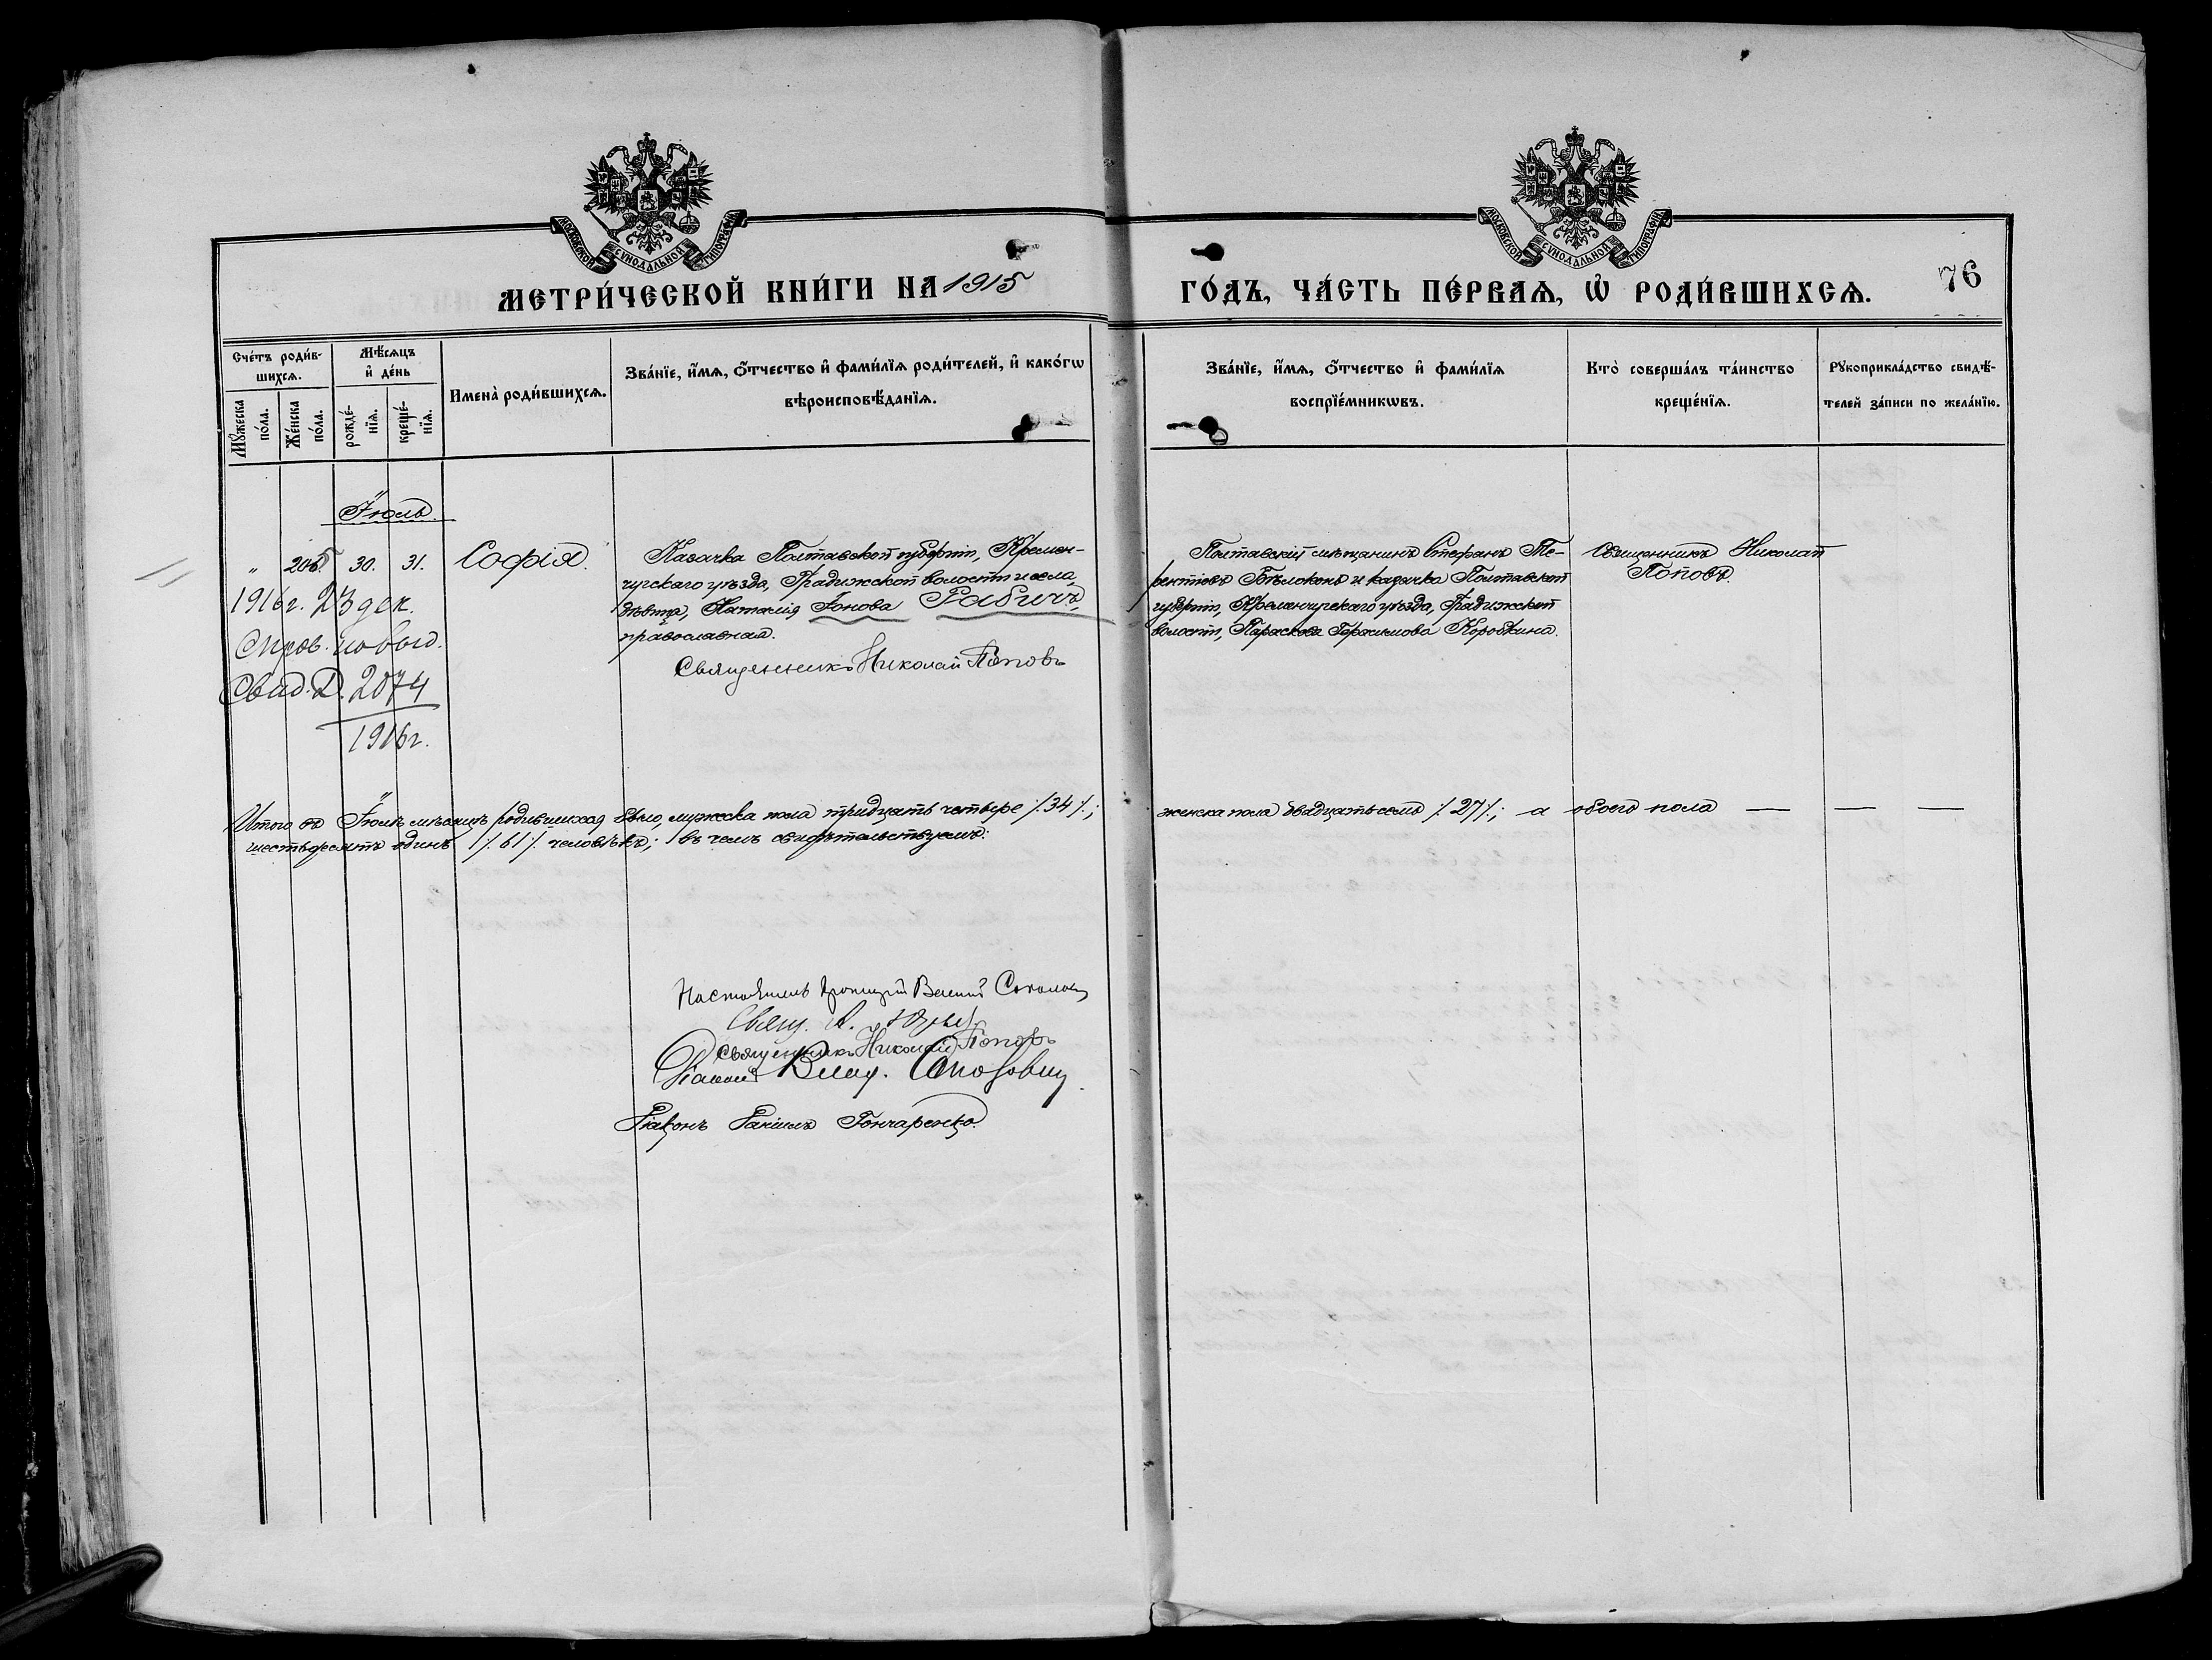 МОСКОВСКОЙ СѴНОДАЛЬНОЙ ТИПОГРАФІИ
МОСКОВСКОЙ СѴНОДАЛЬНОЙ ТИПОГРАФІИ
МЕТРИ́ЧЕСКОЙ КНИ́ГИ НА 1915
ГО́ДЪ, ЧА́СТЬ ПЕ́РВАѦ, Ѡ҆ РОДИ́ВШИХСѦ.
76
Сче́тъ роди́в-
шихсѧ.
Мꙋ́жеска по́ла.
Же́нска по́ла.
Мѣ́сѧцъ
и҆ де́нь
рожде́-
нїѧ.
креще́-
нїѧ.
Имена̀ роди́вшихсѧ.
Зва́нїе, и҆́мѧ, ѻ҆́тчество и҆ фами́лїѧ роди́телей, и҆ како́гѡ
вѣроисповѣ́данїѧ.
Зва́нїе, и҆́мѧ, ѻ҆́тчество и҆ фами́лїѧ
воспрїе́мникѡвъ.
Кто̀ соверша́лъ та́инство
креще́нїѧ.
Рꙋкоприкла́дство свидѣ́-
телей за́писи по жела́нїю.
Іюль.
" 205. 30. 31. Софія.
1916 г. 23 дек.
выд.
Свид. 2074
1916 г.
Казачка Полтавской губерніи, Кремен-
чугскаго уѣзда, Градижской волости и села,
дѣвица, Наталія Іонова Рабичъ,
православная.
Священникъ Николай Поповъ
Полтавскій мѣщанинъ Стефанъ Те-
рентіевъ Бѣлоконь и казачка Полтавской
губерніи, Кременчугскаго уѣзда, Градижской
волости, Параскева Герасимова Коробкина.
Священникъ Николай
Поповъ.
Итого въ Іюлѣ мѣсяцѣ родившихся было, мужеска пола тридцать четыре /.34/.;
женска пола двадцать семь /.27/.; а обоего пола — — —
шестьдесятъ одинъ /.61/. человѣкъ; въ чемъ свидѣтельствуемъ:
Настоятель Протоіерей Василій Соколовъ
Свящ. А.
Священникъ Николай Поповъ
Діаконъ Влад.
Діаконъ Гончаренко.